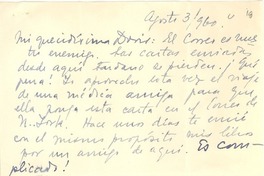 Agosto 3/960.
Mi queridísima Doris: El Correo es nues
tro enemigo. Las cartas enviadas
desde aquí tardan o se pierden. ¡Qué
pena! Yo aprovecho esta vez el viaje
de una médica amiga para que
ella ponga esta carta en el Correo de
N. York. Hace unos días te envié
con el mismo propósito mis libros
por un amigo de aquí. Es com-
plicado!